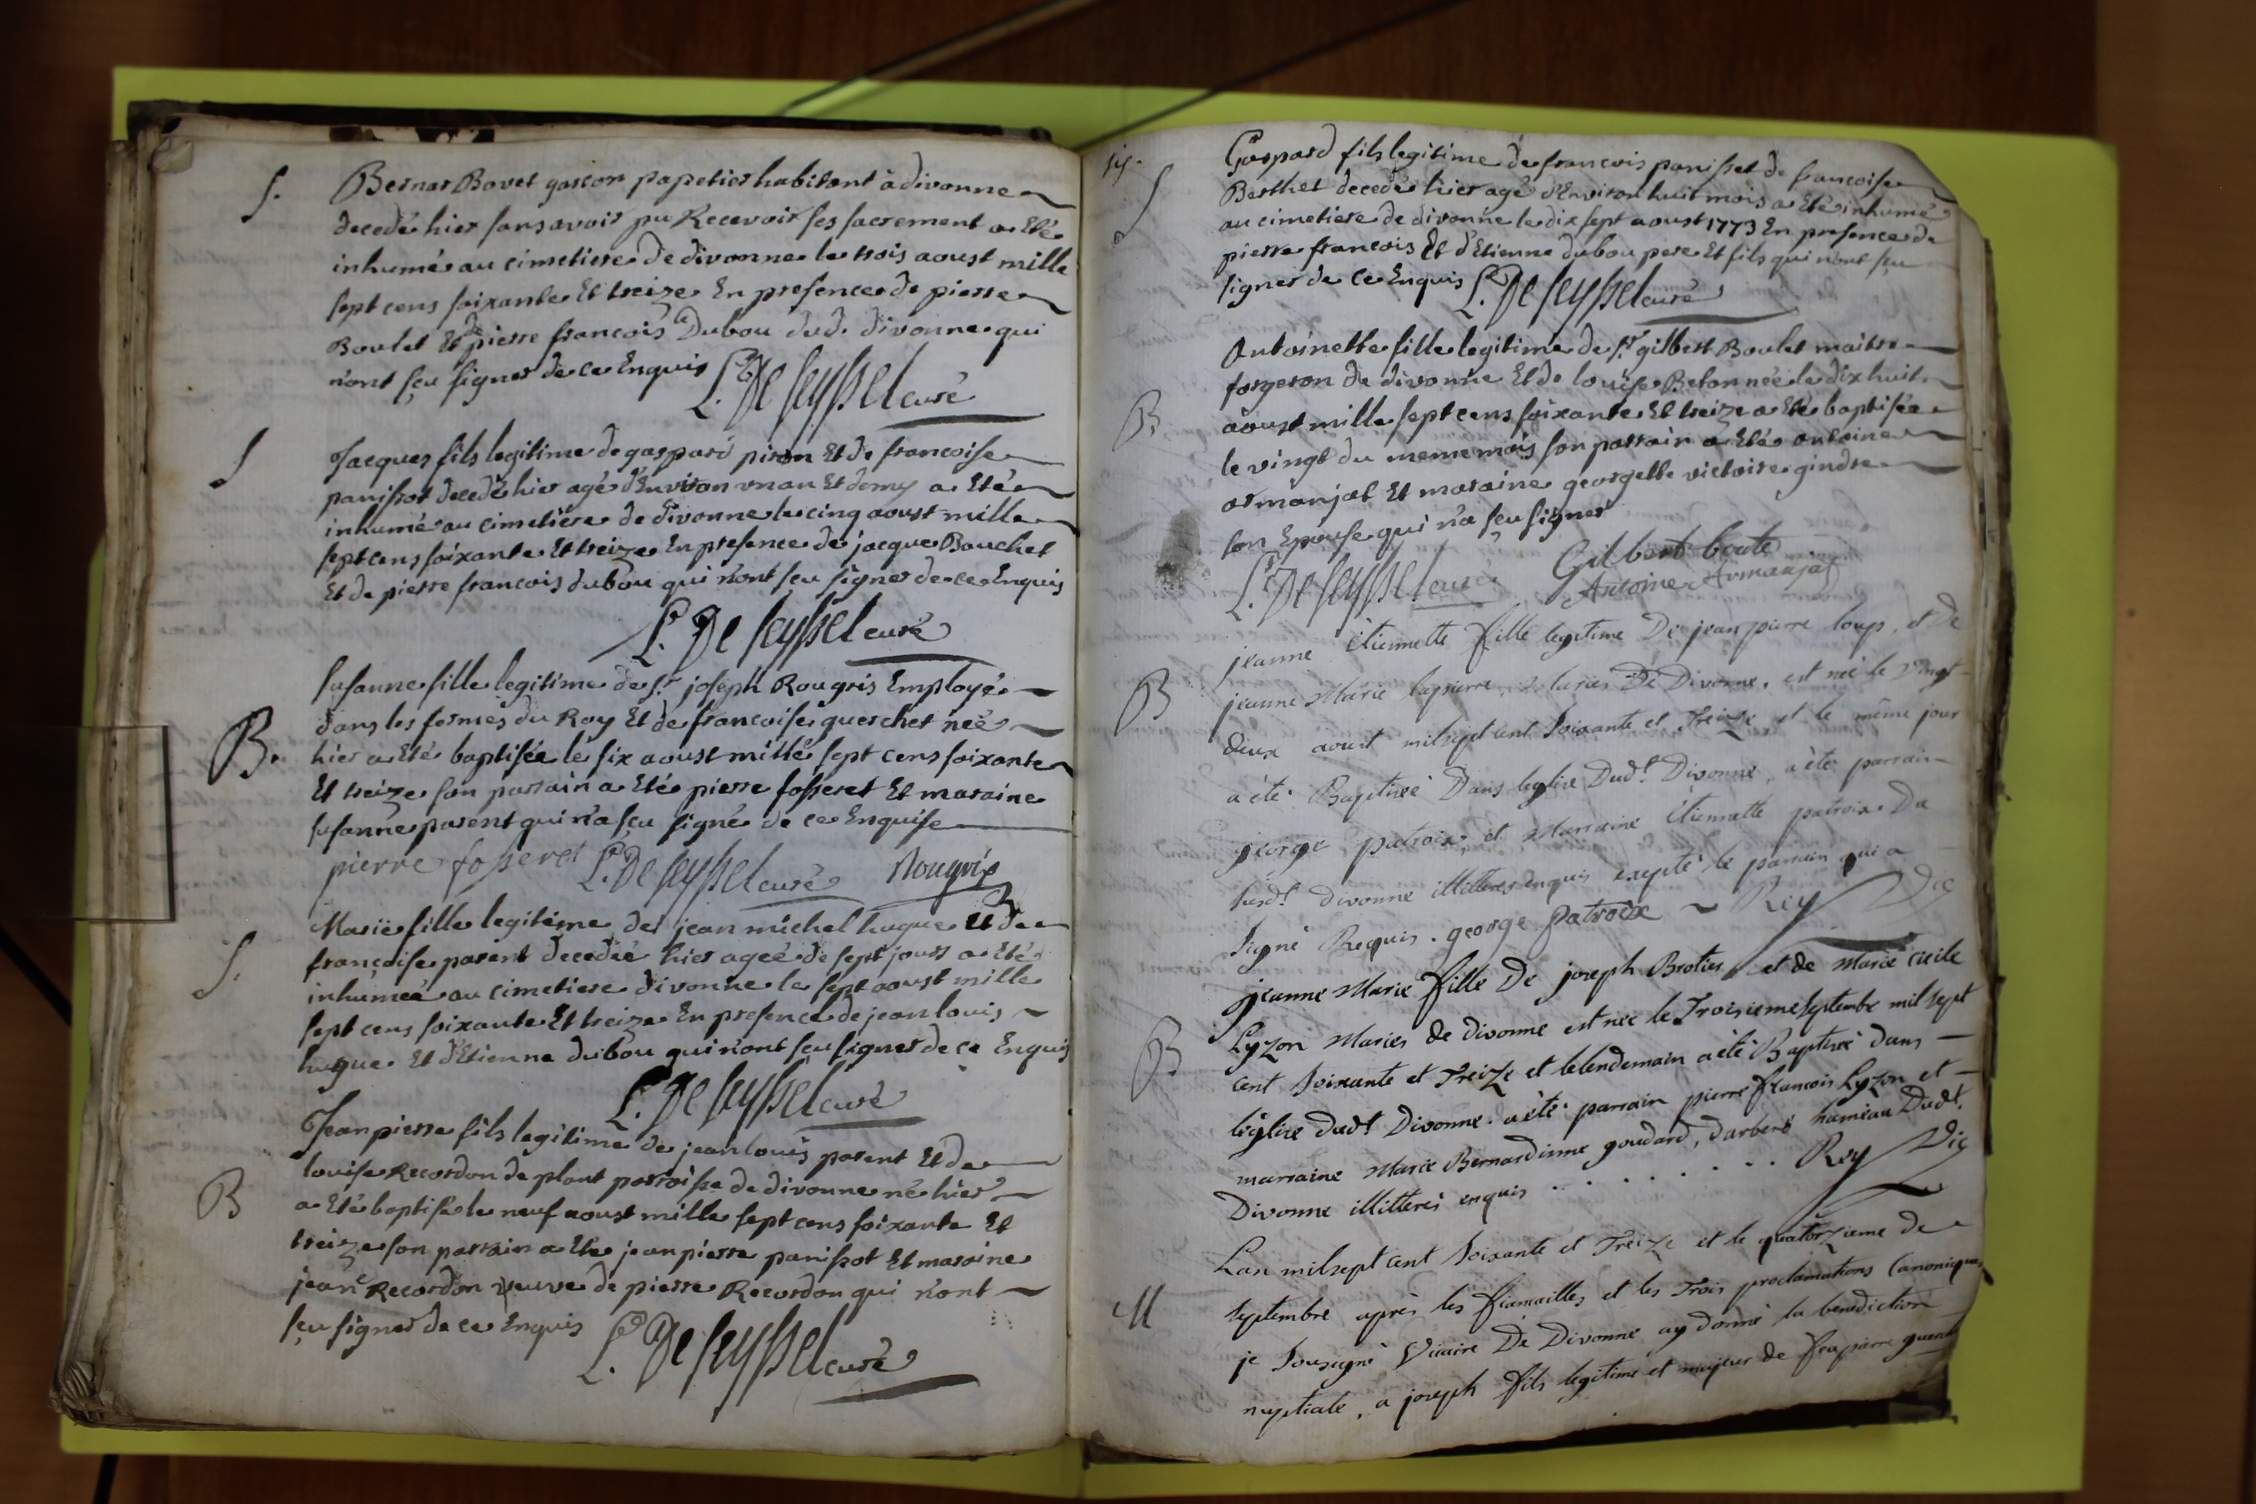 S. Bernar Bovet garcon papetier habitant à divonne
decedé hier sans avoir pu Recevoir ses sacrement a Eté
inhumé au cimetiere de divonne le trois aoust mille
sept cens soixante Et treize En presence de pierre
Boulet Et de pierre francois Dubou dud. divonne qui
n'ont sçu signer de ce Enquis L. De Seyssel curé
S Jacques fils legitime de gaspard piron Et de francoise
panissot decedé hier agé d'Environ un an Et demy a Eté
inhumé au cimetière de divonne le cinq aoust mille
sept cens soixante Et treize En presence de jacque Bouchet
Et de pierre francois dubou qui n'ont sçu signer de ce Enquis
L. De Seyssel curé
Susanne fille legitime de Sr joseph Rougris Employé
B. dans les fermes du Roy Et de francoise querchet née
hier a Eté baptisée le six aoust mille sept cens soixante
Et treize son parrain a Eté pierre fosseret Et maraine
susanne parent qui n'a sçu signé de ce Enquise
pierre fosseret L. De Seyssel curé Rougris
Marie fille legitime de jean michel hugue Et de
S. françoise parent decedée hier ageé de sept jours a Eté
inhumeé au cimetiere divonne le sept aoust mille
sept cens soixante Et treize En presence de jean louis
hugue Et d'Etienne dubou qui n'ont sçu signer de ce Enquis
L. De Seyssel curé
Jean pierre fils legitime de jean louis parent Et de
louise Recordon de plant parroisse de divonne né hier
B a Eté baptisé le neuf aoust mille sept cens soixante Et
treize son parrain a Eté jean pierre panissot Et maraine
jeane Recordon veuve de pierre Recordon qui n'ont
sçu signer de ce Enquis L. De Seyssel curé
Gaspard fils legitime de francois panisset de francoise
S Berthet decedé hier agé d'Environ huit mois a Eté inhumé
au cimetiere de divonne le dix sept aoust 1773 En presence de
pierre francois Et d'Etienne dubou pere Et fils qui n'ont sçu
signer de ce Enquis L. De Seyssel curé
Antoinette fille legitime de Sr gilbert Boulet maitre
forgeron de divonne Et de louise Beton née le dix huit
B. aoust mille sept cens soixante Et treize a Eté baptisée
le vingt du meme mois son parrain a Eté antoine
armanjat Et maraine georgette victoire gindre
son Epouse qui n'a sçu signer
Gilbert boute
L. De Seyssel curé Antoine Armanjat
jeanne étiennette fille legitime De jean pierre loup, et De
B jeanne Marie lapierre, Mariés De Divonne, est née le vingt
deux aoust mil sept cent soixante et Treize et le même jour
a été Baptisée Dans leglise Dudt Divonne, a été parrain
george patroix, et Marraine étiennette patroix Du
susdt divonne illitterés enquis excepté le parrain qui a
signé Requis. george patroix ~ Rey Vic
jeanne Marie fille De joseph Brotier et de Marie Cicile
B Lyzon Mariés de divonne est née le Troisieme septembre mil sept
cent soixante et Treize et le lendemain a été Baptisée dans
léglise dudt Divonne. a été parrain pierre françois Lyzon et
marraine Marie Bernardinne goudard, darberé hameau Dudt
Divonne illitterés enquis . . . . . . . Rey Vic
Lan mil sept cent soixante et Treize et le quatorzieme de
M septembre aprés les fiancailles et les Trois proclamations Canoniques
je soussigné Vicaire De Divonne ay donné la benediction
nuptiale, a joseph fils legitime et majeur de feu pierre